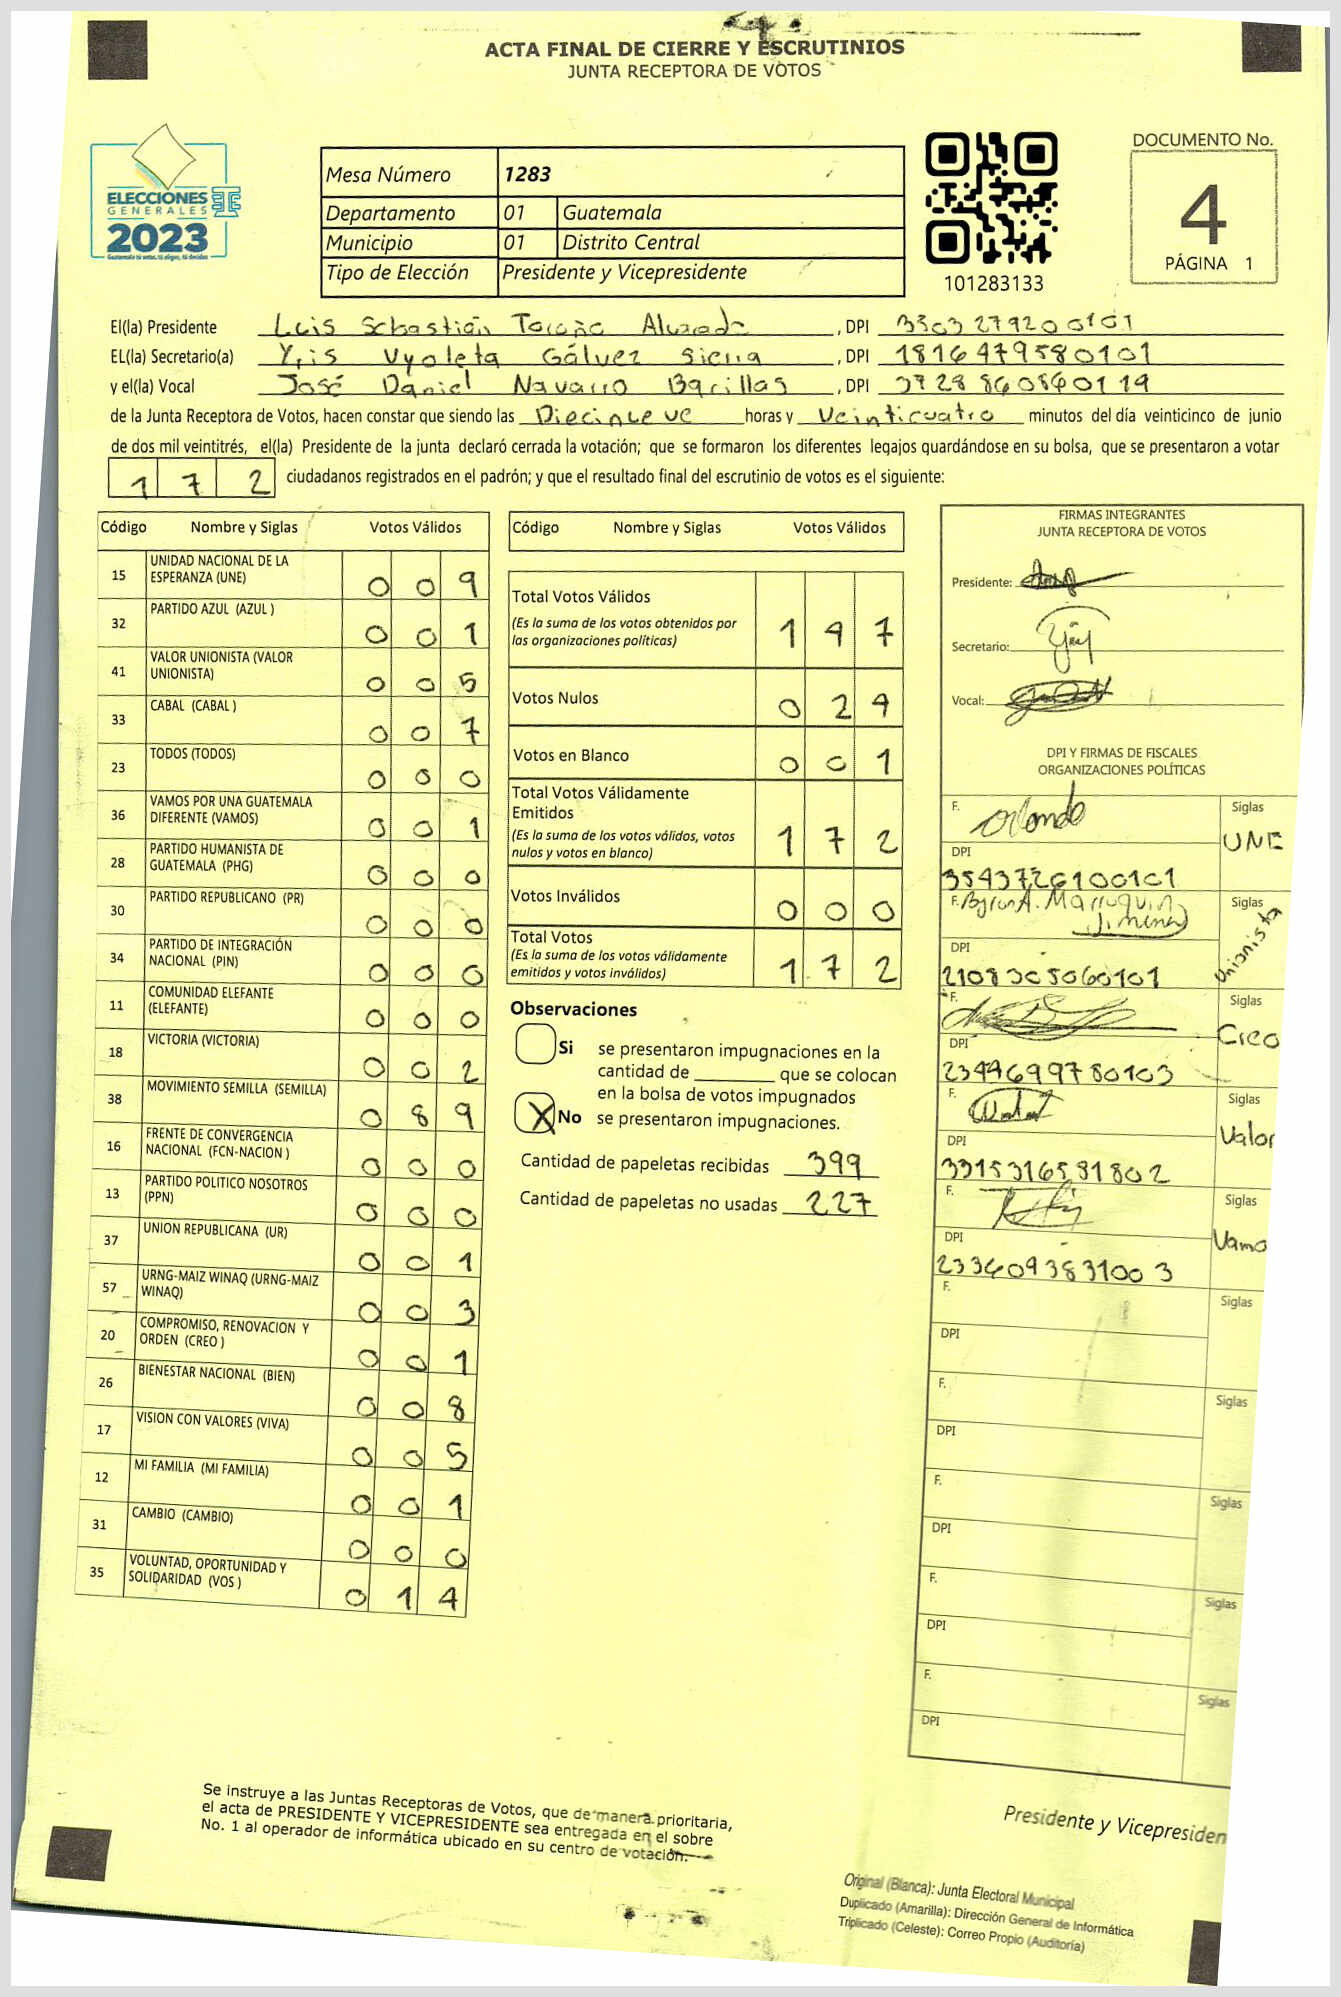 ACTA FINAL DE CIERRE Y ESCRUTINIOS
JUNTA RECEPTORA DE VOTOS
ELECCIONES
GENERALES
2023
Guatemala tú votas, tú eliges, tú decides
Mesa Número 1283
Departamento 01 Guatemala
Municipio 01 Distrito Central
Tipo de Elección Presidente y Vicepresidente
101283133
DOCUMENTO No.
4
PÁGINA 1
El(la) Presidente Luis Sebastián Alvarado , DPI 3303279200101
EL(la) Secretario(a) Yris Vyoleta Gálvez Sierra , DPI 1816479580101
y el(la) Vocal José Daniel Navarro Barillas , DPI
de la Junta Receptora de Votos, hacen constar que siendo las Diecinueve horas y Veinticuatro minutos del día veinticinco de junio
de dos mil veintitrés, el(la) Presidente de la junta declaró cerrada la votación; que se formaron los diferentes legajos quardándose en su bolsa, que se presentaron a votar
172 ciudadanos registrados en el padrón; y que el resultado final del escrutinio de votos es el siguiente:
Código Nombre y Siglas Votos Válidos
15 UNIDAD NACIONAL DE LA
ESPERANZA (UNE) 009
32 PARTIDO AZUL (AZUL ) 001
41 VALOR UNIONISTA (VALOR
UNIONISTA) 005
33 CABAL (CABAL ) 007
23 TODOS (TODOS) 000
36 VAMOS POR UNA GUATEMALA
DIFERENTE (VAMOS) 001
28 PARTIDO HUMANISTA DE
GUATEMALA (PHG) 000
30 PARTIDO REPUBLICANO (PR) 000
34 PARTIDO DE INTEGRACIÓN
NACIONAL (PIN) 000
11 COMUNIDAD ELEFANTE
(ELEFANTE) 000
18 VICTORIA (VICTORIA) 002
38 MOVIMIENTO SEMILLA (SEMILLA) 089
16 FRENTE DE CONVERGENCIA
NACIONAL (FCN-NACION ) 000
13 PARTIDO POLITICO NOSOTROS
(PPN) 000
37 UNION REPUBLICANA (UR) 001
57 URNG-MAIZ WINAQ (URNG-MAIZ
WINAQ) 003
20 COMPROMISO, RENOVACION Y
ORDEN (CREO ) 001
26 BIENESTAR NACIONAL (BIEN) 008
17 VISION CON VALORES (VIVA) 005
12 MI FAMILIA (MI FAMILIA) 001
31 CAMBIO (CAMBIO) 000
35 VOLUNTAD, OPORTUNIDAD Y
SOLIDARIDAD (VOS ) 014
Código Nombre y Siglas Votos Válidos
Total Votos Válidos
(Es la suma de los votos obtenidos por
las organizaciones políticas) 147
Votos Nulos 024
Votos en Blanco 001
Total Votos Válidamente
Emitidos
(Es la suma de los votos válidos, votos
nulos y votos en blanco) 172
Votos Inválidos 000
Total Votos
(Es la suma de los votos válidamente
emitidos y votos inválidos) 172
Observaciones
Si se presentaron impugnaciones en la
cantidad de ________ que se colocan
en la bolsa de votos impugnados
X No se presentaron impugnaciones.
Cantidad de papeletas recibidas 399
Cantidad de papeletas no usadas 227
FIRMAS INTEGRANTES
JUNTA RECEPTORA DE VOTOS
Presidente:
Secretario:
Vocal:
DPI Y FIRMAS DE FISCALES
ORGANIZACIONES POLÍTICAS
F. Orlando Siglas
UNE
DPI
3543726100101
F. Byron A. Marroquín Siglas
Jimenez Unionista
DPI
2108305060101
F. Siglas
Creo
DPI
2344699780103
F. Siglas
Valor
DPI
3315316581802
F. Siglas
Vamo
DPI
2336093831003
F. Siglas
DPI
F. Siglas
DPI
F. Siglas
DPI
F. Siglas
DPI
F. Siglas
DPI
Se instruye a las Juntas Receptoras de Votos, que de manera prioritaria,
el acta de PRESIDENTE Y VICEPRESIDENTE sea entregada en el sobre
No. 1 al operador de informática ubicado en su centro de votación.
Presidente y Vicepresiden
Original (Blanca): Junta Electoral Municipal
Duplicado (Amarilla): Dirección General de Informática
Triplicado (Celeste): Correo Propio (Auditoría)